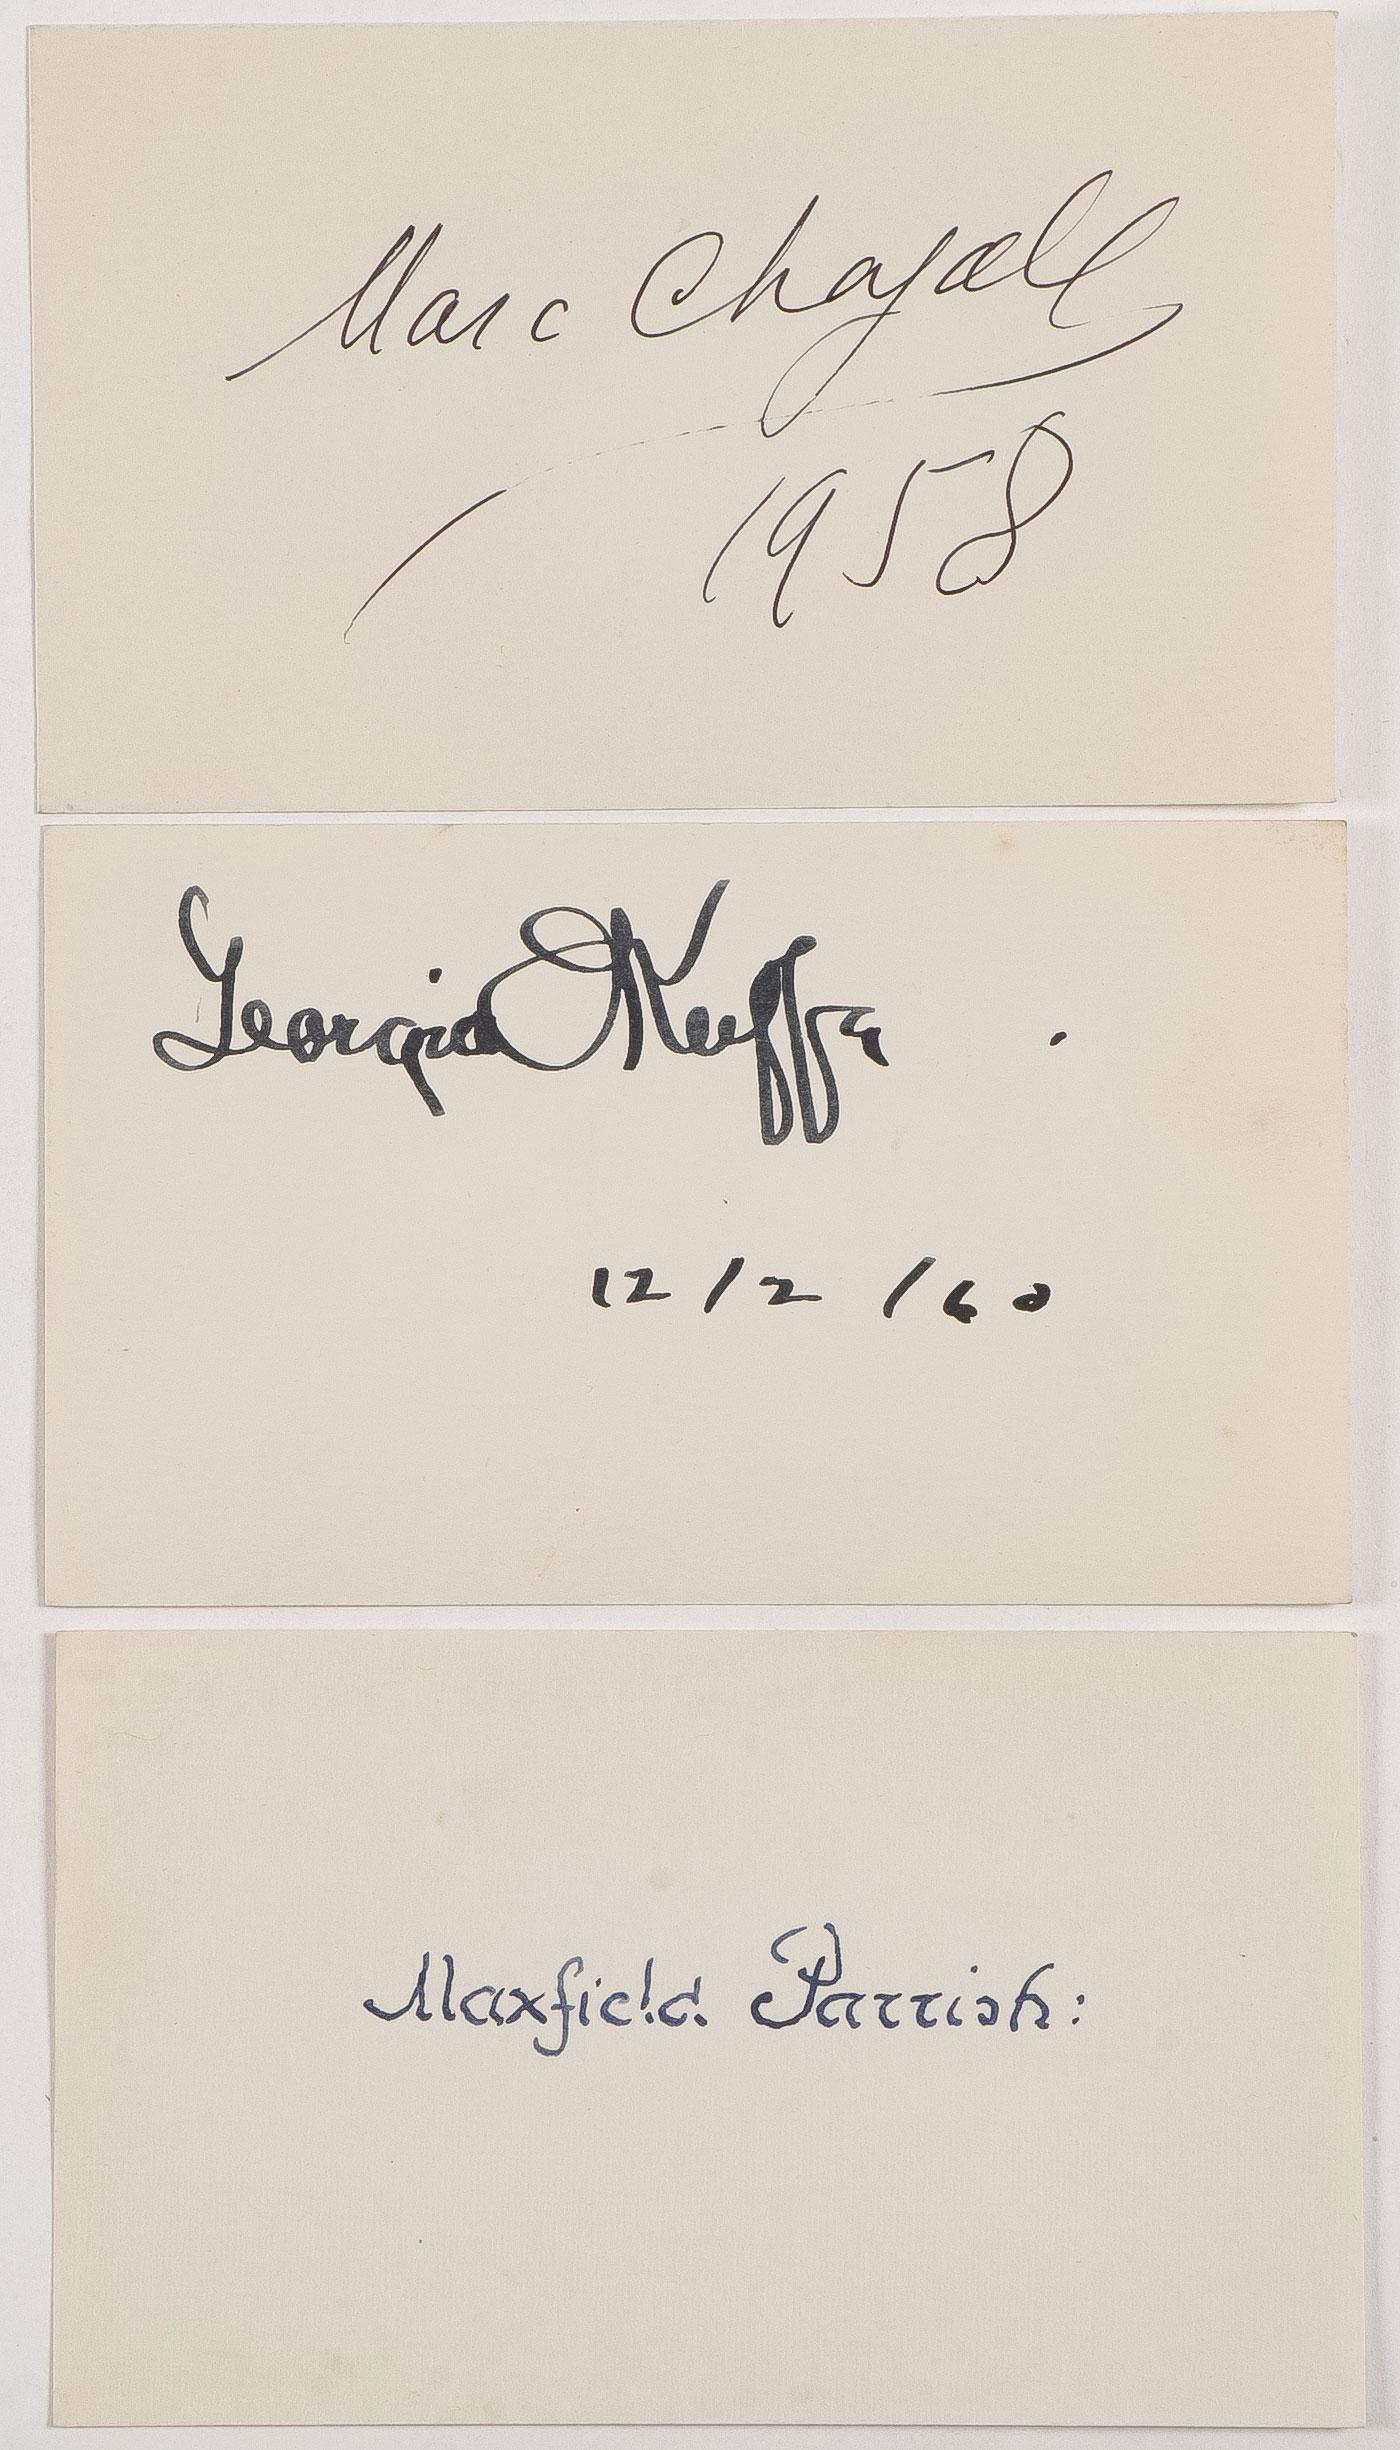 Marc Chagall
1958
Georgia O'Keeffe
12/2/60
Maxfield Parrish: